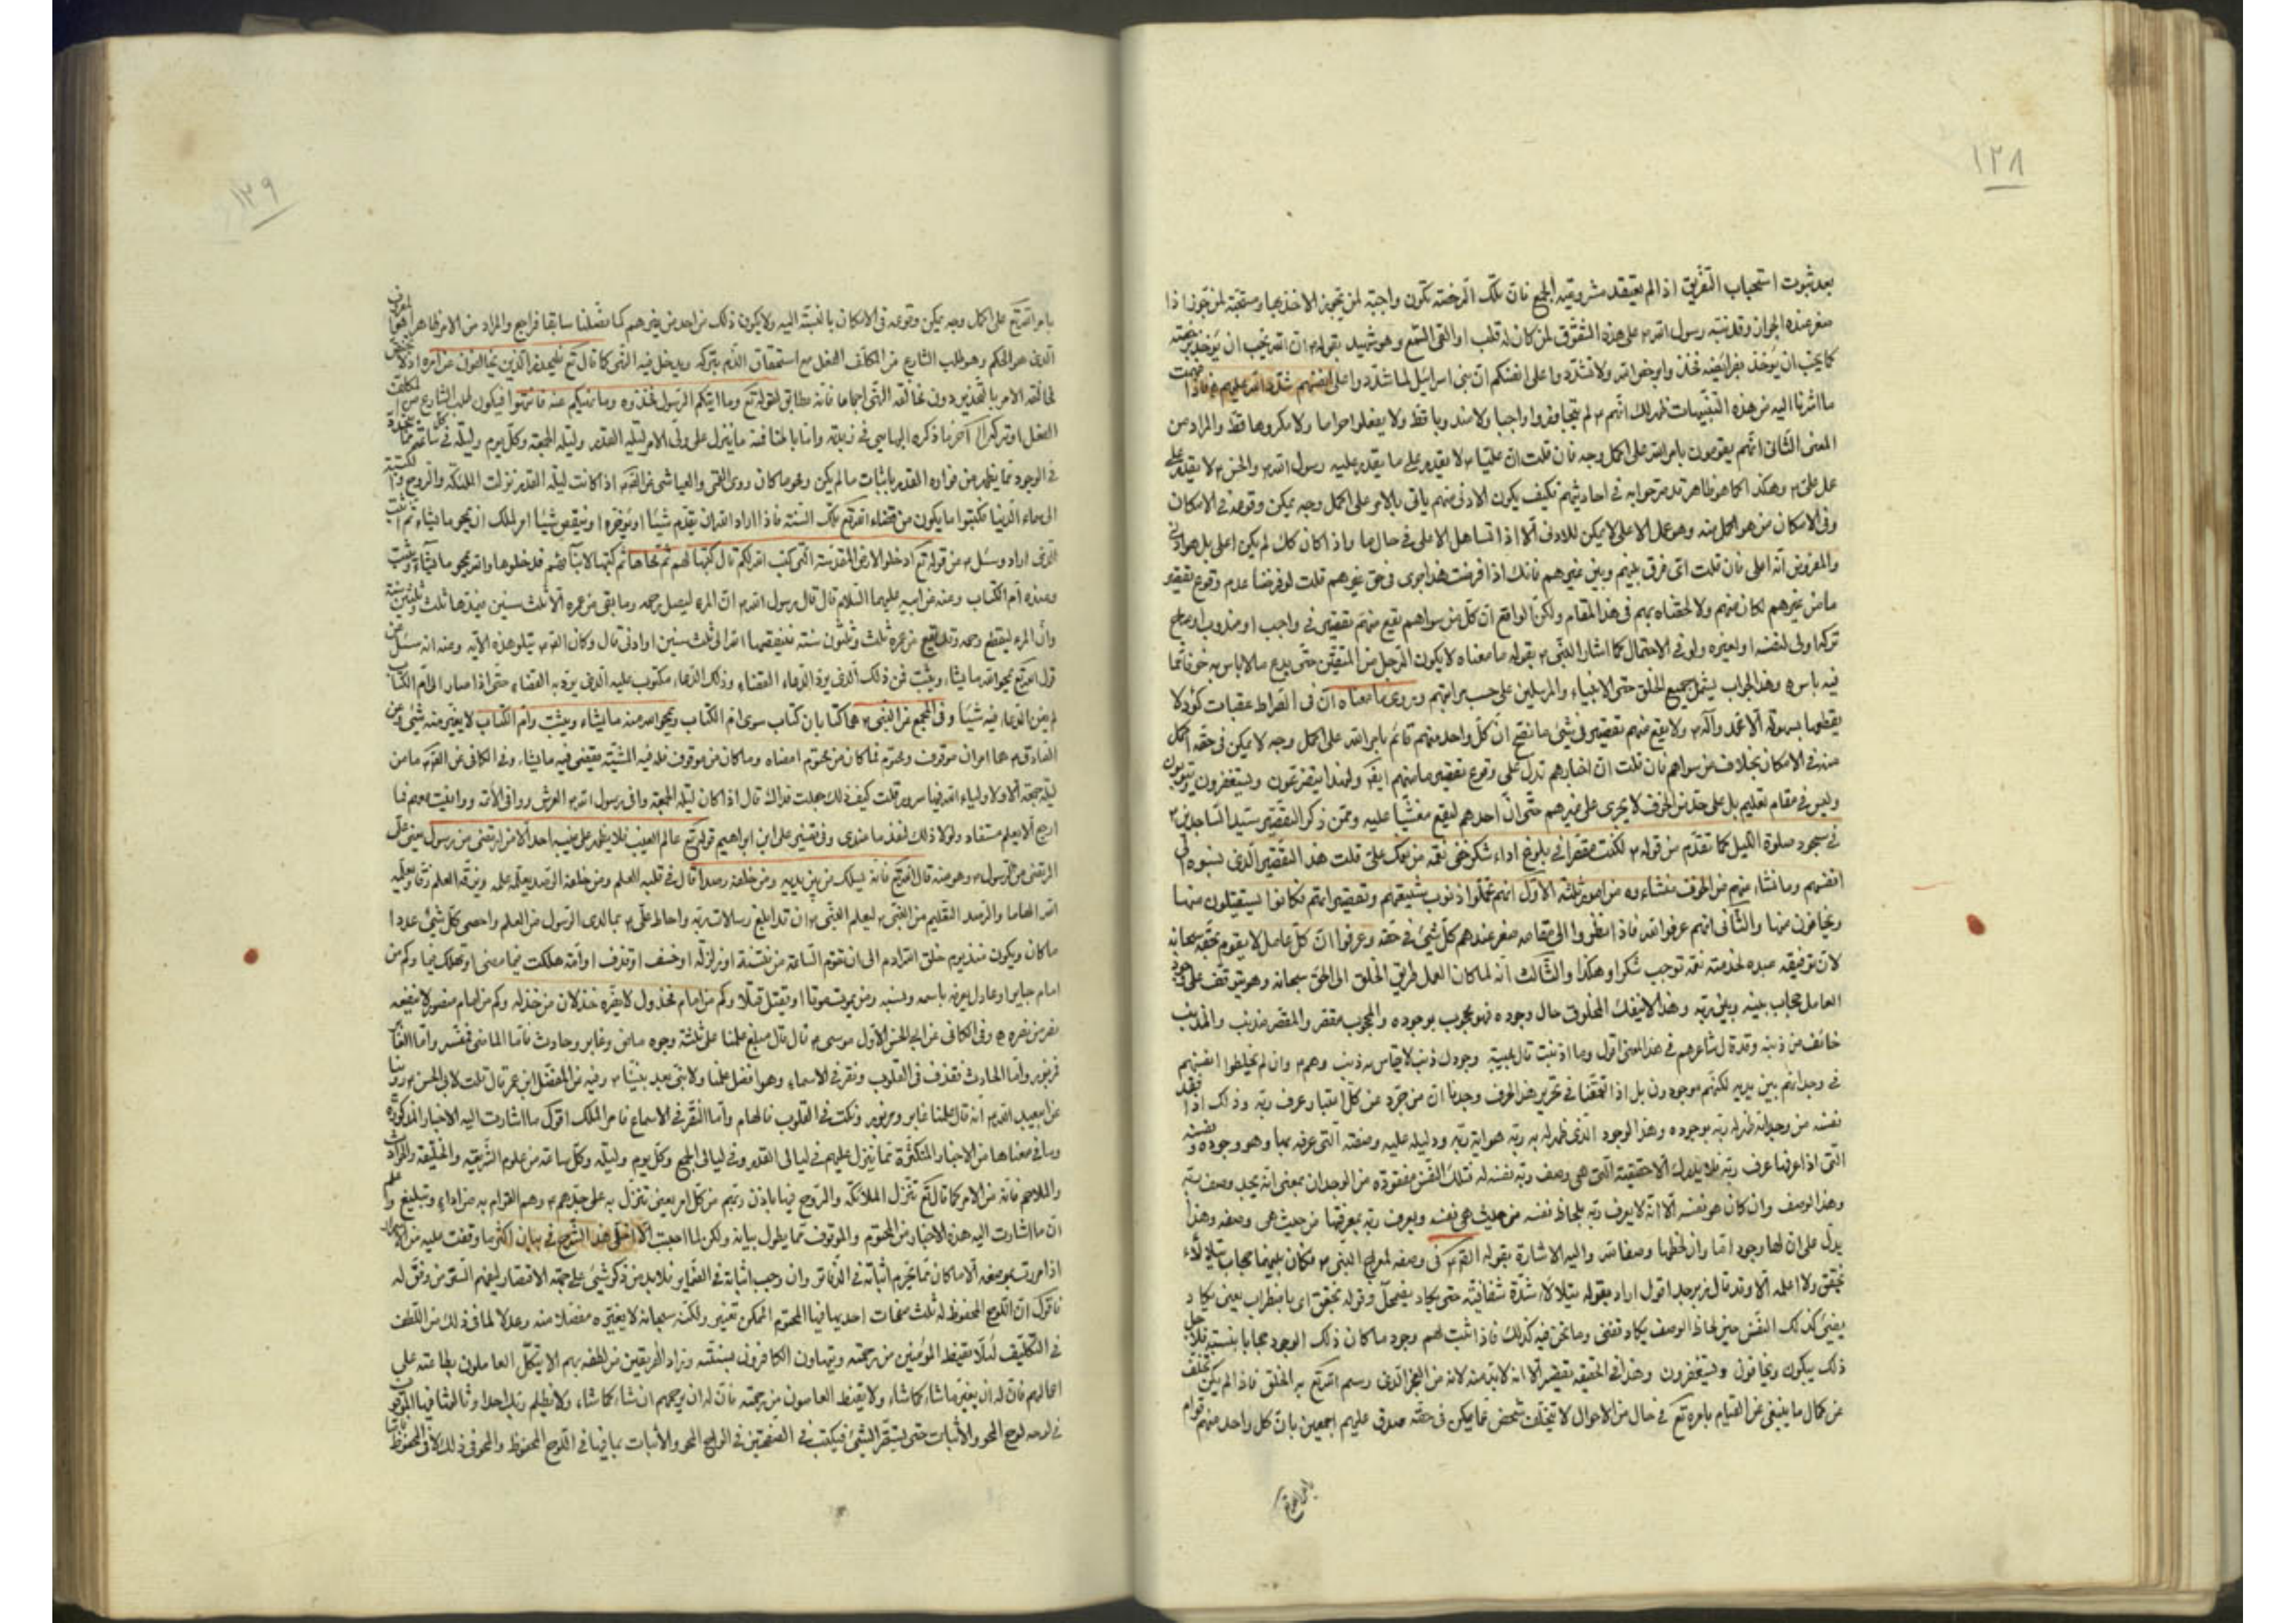 ١٢٨
بعد ثبوت استحباب التفريق اذا لم يعتقد مشروعية الجمع فان تلك الرخصة تكون واجبة لمن يتجوز الاخذ بها ومستحبة لمن جوز اذا
صغر عنده الجواز وقد نبه رسول الله ص على هذه الشقوق لمن كان له قلب او القى السمع وهو شهيد بقوله ص ان الله يحب ان يؤخذ برخصه
كما يحب ان يؤخذ بفرايضه فخذوا برخص الله ولا تشددوا على انفسكم ان بني اسرائيل لما شددوا على انفسهم شدد الله عليهم فاذا فهمت
ما اشرنا اليه من هذه التنبيهات ظهر لك انهم ع لم يتجاوزوا واجبا ولا مندوبا قط ولا يفعلوا حراما ولا مكروها قط والمراد من
المعنى الثاني انهم يقومون بامر الله على اكمل وجه فان قلت ان عليا ع لا يقدر على ما يقدر عليه رسول الله ص والحسن ع لا يقدر على
عمل علي ع وهكذا كما هو ظاهر قد صرحوا به في احاديثهم فكيف يكون الادنى منهم ياتي بالامر على اكمل وجه يمكن وقوعه في الامكان
وفي الامكان من هو اكمل منه وهو عمل الاعلى لا يمكن للادنى الا اذا تساهل الاعلى في حال ما واذا كان كك لم يكن اعلى بل هو ادنى
والمفروض انه اعلى فان قلت اي فرق بينهم وبين غيرهم فانك اذا فرضت هذا جرى في حق غيرهم قلت لو فرضنا عدم وقوع تقصير
ما من غيرهم لكان منهم ولالحقناه بهم في هذا المقام ولكن الواقع ان كل من سواهم يقع منهم تقصير في واجب او مندوب او مباح
تركه اولى لنفسه او لغيره ولو في الاحتمال كما اشار النبي ص بقوله ما معناه لا يكون الرجل من المتقين حتى يدع ما لا باس به خوفا مما
فيه باس وهذا الجواب يشمل جميع الخلق حتى الانبياء والمرسلين على حسب مراتبهم وروي ما معناه ان في الصراط عقبات كؤد لا
يقطعها بسهولة الا محمد وآله ص ولا يقع منهم تقصير في شئ ما فصح ان كل واحد منهم قائم بامر الله على اكمل وجه لا يمكن في حقه اكمل
منه في الامكان بخلاف من سواهم فان قلت ان اخبارهم تدل على وقوع تقصير ما منهم ايضا ولهذا يتضرعون ويستغفرون ويبكون
وليس في مقام تعليم بل على حد من الخوف لا يجرى على غيرهم حتى ان احدهم ليقع مغشيا عليه وممن ذكر التقصير سيد الساجدين ع
في سجود صلوة الليل كما تقدم من قوله ع لكنت مقصرا في بلوغ اداء شكر خفي نعمة من نعمك علي قلت هذا التقصير الذي نسبوه الى
انفسهم وما نشاء منهم من الخوف منشاءه من امور ثلثة الاول انهم تحملوا ذنوب شيعتهم وتقصيراتهم فكانوا يستقيلون منها
ويخافون منها والثاني انهم عرفوا الله فاذا نظروا الى مقامه صغر عندهم كل شئ في حقه وعرفوا ان كل عامل لا يقوم بحقه سبحانه
لان توفيقه عبده لخدمته نعمة توجب شكرا وهكذا والثالث انه لما كان العمل طريق الخلق الى الحق سبحانه وهو يتوقف على وجود
العامل حجاب بينه وبين ربه وهذا لا ينفك المخلوق حال وجوده فهو محجوب بوجوده والمحجوب مقصر والمقصر مذنب والمذنب
خائف من ذنبه وقد قال شاعرهم في هذا المعنى اقول وما اذنبت قال مجيبة وجودك ذنب لا يقاس به ذنب وهم ع وان لم يلحظوا انفسهم
في وجدانهم بين يديه لكنهم موجودون بل اذا تعمقنا في تحرير هذا الحرف وجدنا ان من تجرد عن كل اعتبار عرف ربه وذلك اذا فقد
نفسه من وجدانه ظهر له ربه بوجوده وهذا الوجود الذي ظهر له به ربه هو اية ربه ودليله عليه وصفته التي عرفه بها وهو وجوده ونفسه
التي اذا عرفها عرف ربه فلا يدرك الا حقيقته التي هي وصف ربه نفسه له فتلك النفس مفقودة من الوجدان بمعنى انه يجد وصف ربه
وهذا الوصف وان كان هو نفسه الا انه لا يعرف ربه بلحاظ نفسه من حيث هي نفسه ويعرف ربه بمعرفتها من حيث هي وصفه وهذا
يدل على ان لها وجود اما وان لحظها وصفا لله واليه الاشارة بقوله الصادق ع في وصفه لمعراج النبي ص فكان بينهما حجاب يتلألأ
بخفق ولا اعلمه الا وقد قال زبرجد اقول اراد بقوله يتلألأ شدة شفافيته حتى يكاد يضمحل وقوله بخفق اي باضطراب يعني يكاد
يفنى كذلك النفس حين لحاظ الوصف يكاد تفنى وما نحن فيه كذلك فاذا ثبت لهم وجود ما كان ذلك الوجود حجابا بنسبته فلاجل
ذلك يبكون ويخافون ويستغفرون وهذا في الحقيقة تقصير الا انه لا بد منه لانه من العجز الذي وسم الله تع به الخلق فاذا لم يكن تخلف
عن كمال ما ينبغي من القيام بامره تع في حال من الاحوال لا بتخلف شخص عما يمكن في حقه صدق عليهم اجمعين بان كل واحد منهم قوام
بامر الله تع
١٢٩
بامر الله تع على اكمل وجه يمكن وقوعه في الامكان بالنسبة اليه ولا يكون ذلك من احد من غيرهم كما فصلنا سابقا فراجع والمراد من الامر ظاهرا هو المعروف
الذي هو الحكم وهو طلب الشارع من المكلف الفعل مع استحقاق الذم بتركه ويدخل فيه النهي كما قال تع فليحذر الذين يخالفون عن امره اذ لا يختص
مخالفة الامر بالتحذير دون مخالفة النهي اجماعا فانه مطابق لقوله تع وما اتيكم الرسول فخذوه وما نهيكم عنه فانتهوا فيكون لطلب الشارع من المكلف
الفعل او تركه الى آخر ما ذكره واما باطنا فمنه ما ينزل على ولي الامر ليلة القدر وليلة الجمعة وكل يوم وليلة في ساعة مما يتجدد
في الوجود مما يظهر من فواره القدر باثبات ما لم يكن ومحو ما كان روى القمي والعياشي عن الصادق ع اذا كانت ليلة القدر نزلت الملئكة والروح والكتبة
الى سماء الدنيا فكتبوا ما يكون من قضاء الله تع تلك السنة فاذا اراد الله ان يقدم شيئا او يؤخره او ينقص شيئا امر الملك ان يمحو ما يشاء ثم اثبت
الذي اراد وسئل ع عن قوله تع ادخلوا الارض المقدسة التي كتب الله لكم قال كتبها لهم ثم محاها ثم كتبها لابنائهم فدخلوها والله يمحو ما يشاء ويثبت
وعنده ام الكتاب وعنه عن ابيه عليهما السلام قال قال رسول الله ص ان المرء ليصل رحمه وما بقي من عمره الا ثلث سنين فيمدها ثلث وثلثين سنة
وان المرء ليقطع رحمه وقد بقي من عمره ثلث وثلثون سنة فينقصها الله الى ثلث سنين او ادنى قال وكان الصادق ع يتلو هذه الاية وعنه انه سئل عن
قول الله تع يمحو الله ما يشاء ويثبت فمن ذلك الذي يرد الدعاء القضاء وذلك الدعاء مكتوب عليه الذي يرد به القضاء حتى اذا صار الى ام الكتاب
لم يغن الدعاء فيه شيئا وفي المجمع عن النبي ص هما كتابان كتاب سوى ام الكتاب ويمحو الله منه ما يشاء ويثبت وام الكتاب لا يغير منه شئ وعن
الصادق ع هما امران موقوف ومحتوم فما كان من محتوم امضاه وما كان من موقوف فله فيه المشية يقضي فيه ما يشاء وفي الكافي عن الصادق ع ما من
ليلة جمعة الا ولاولياء الله فيها سرور قلت كيف ذلك جعلت فداك قال اذا كان ليلة الجمعة وافى رسول الله ص العرش ووافى الائمة ووافيت معهم فما
ارجع الا بعلم مستفاد ولولا ذلك لنفد ما عندي وفي تفسير علي ابن ابراهيم قوله تع عالم الغيب فلا يظهر على غيبه احدا الا من ارتضى من رسول يعني علي
المرتضى من الرسول ص وهو منه قال الله تع فانه يسلك من بين يديه ومن خلفه رصدا قال في قلبه العلم ومن خلفه الرصد يعلمه علمه ويزقه العلم زقا ويعلمه
الله الهاما والرصد التعليم من النبي ص ليعلم النبي ص ان قد ابلغ رسالات ربه واحاط علي ع بما لدى الرسول من العلم واحصى كل شئ عددا
ما كان ويكون منذ يوم خلق الله ادم الى ان تقوم الساعة من فتنة او زلزلة او خسف او قذف او امة هلكت فيما مضى او تهلك فيما بقي وكم من
امام جاير او عادل يعرفه باسمه ونسبه ومن يموت موتا او يقتل قتلا وكم من امام مخذول لا يضره خذلان من خذله وكم من امام منصور لا ينفعه
نصر من نصره وفي الكافي عن ابي الحسن الاول موسى ع قال قال مبلغ علمنا على ثلثة وجوه ماض وغابر وحادث فاما الماضي فمفسر واما الغابر
فمزبور واما الحادث فقذف في القلوب ونقر في الاسماع وهو افضل علمنا ولا نبي بعد نبينا ص وفيه عن المفضل ابن عمر قال قلت لابي الحسن ع روينا
عن ابي عبد الله ع انه قال علمنا غابر ومزبور ونكت في القلوب فالهام واما النقر في الاسماع فامر الملك اقول ما اشارت اليه الاخبار المذكورة
وما في معناها من الاخبار المتكثرة مما ينزل عليهم في ليالي القدر وفي ليالي الجمع وكل يوم وليلة وكل ساعة من علوم الشريعة والخليقة والميراث
والملاحم فانه من الامر كما قال تع تنزل الملائكة والروح فيها باذن ربهم من كل امر يعني تنزل به على حدهم ع وهم القوام به من اداء وتبليغ واعلم
ان ما اشارت اليه هذه الاخبار من المحتوم والموقوف مما يطول بيانه ولكن لما احببت الا اخلي هذا الشرح في بيان اكثر ما وقفت عليه من الاسرار
اذا مررت بموضعه الا ما كان مما يحرم اثباته في الدفاتر وان وجب اثباته في الضماير فلا بد من ذكر شئ على جهة الاقتصار ليفهم السر من وفق له
فاقول ان اللوح المحفوظ له ثلث صفحات احديها فيها المحتوم الممكن تغييره ولكنه سبحانه لا يغيره فضلا منه وعدلا لما في ذلك من اللطف
في التكليف لئلا يقنط المؤمنين من رحمته ويتهاون الكافرون بسنته وزاد الفريقين من لطفه بهم الا يتكل العاملون بطاعته على
اعمالهم فان له ان يغير ما شاء كما شاء ولا يقنط العاصون من رحمته فان له ان يرحمهم ان شاء كما شاء ولا يظلم ربك احدا وثالثها فيها الموقوف
في لوحه لوح المحو والاثبات حتى يستقر الشئ فيكتب في الصفحتين في الواح المحو والاثبات بما فيها في اللوح المحفوظ والمحو في ذلك لا في المحفوظ